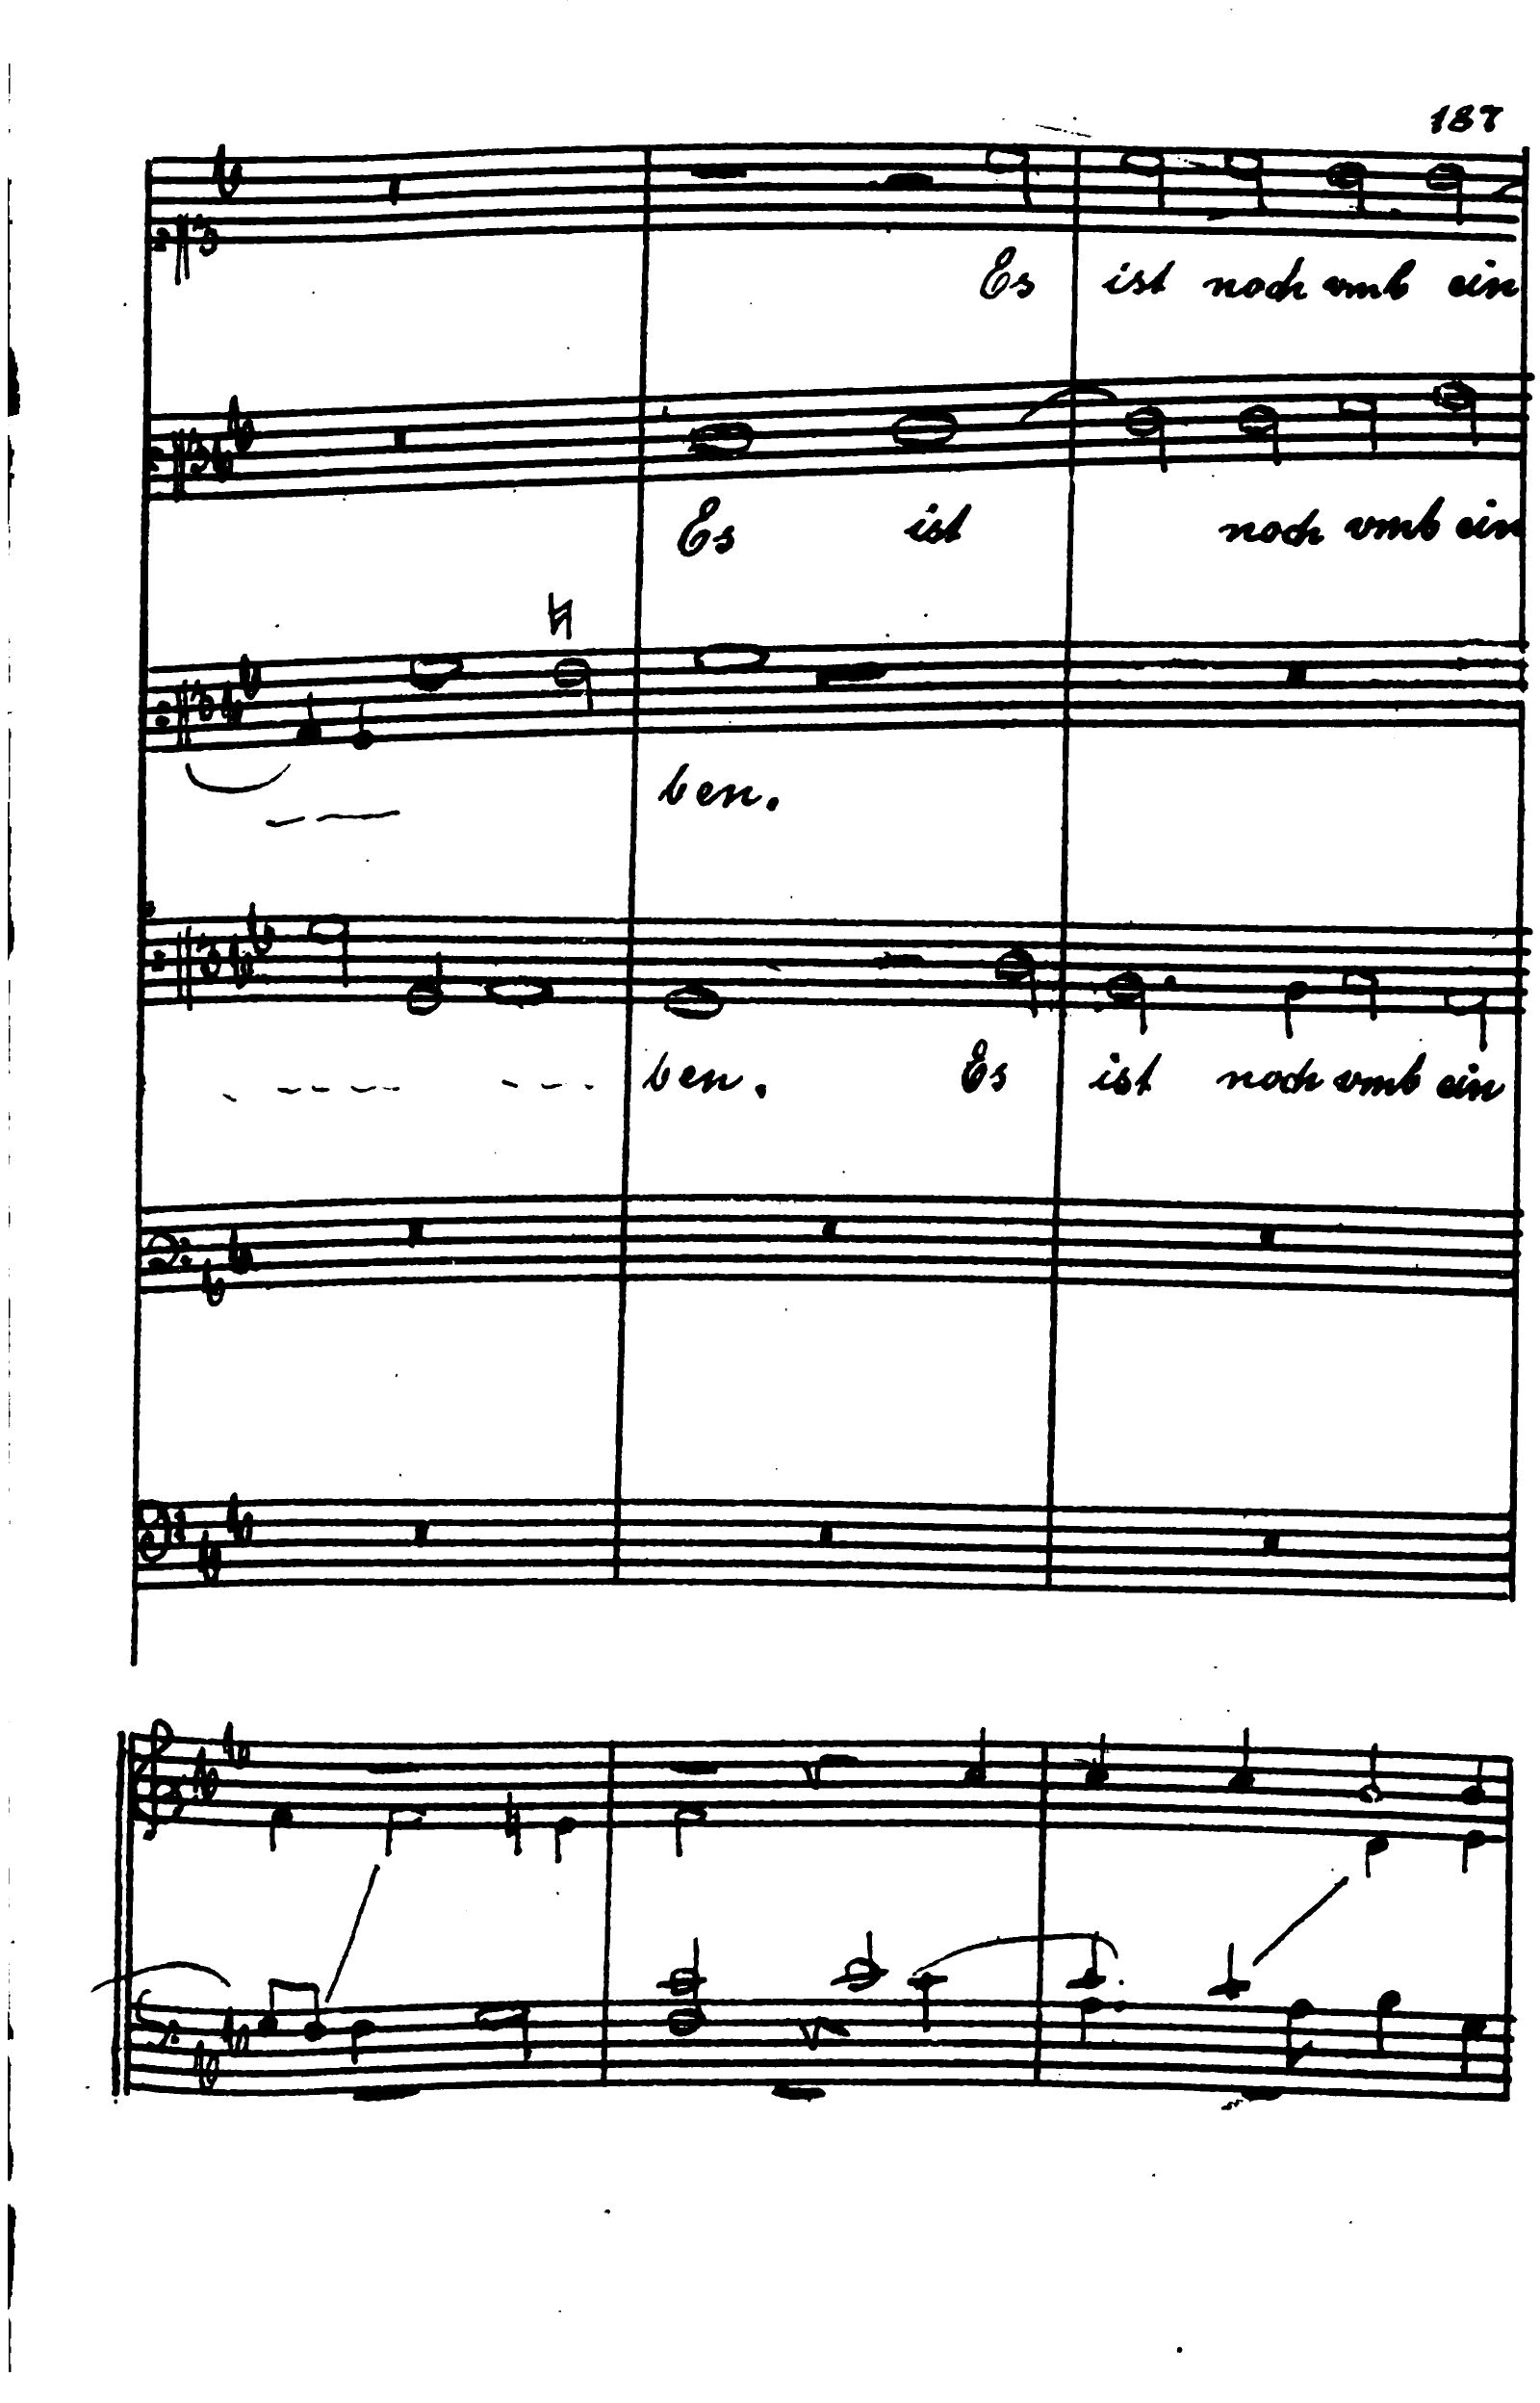 187
Es ist noch vmb ein
Es ist noch vmb ein
ben.
ben. Es ist noch vmb ein